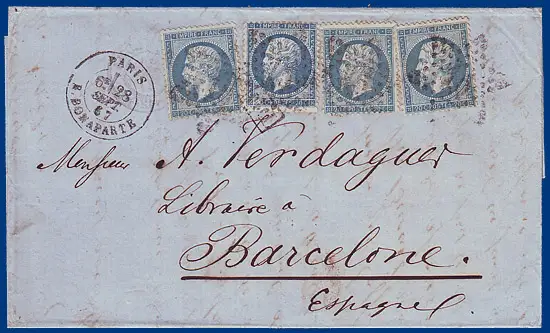 PARIS
6E 23
SEPT.
67
R. BONAPARTE
EMPIRE FRANC
EMPIRE FRANC
EMPIRE FRANC
EMPIRE FRANC
Monsieur A. Verdaguer
Libraire à
Barcelone.
Espagne